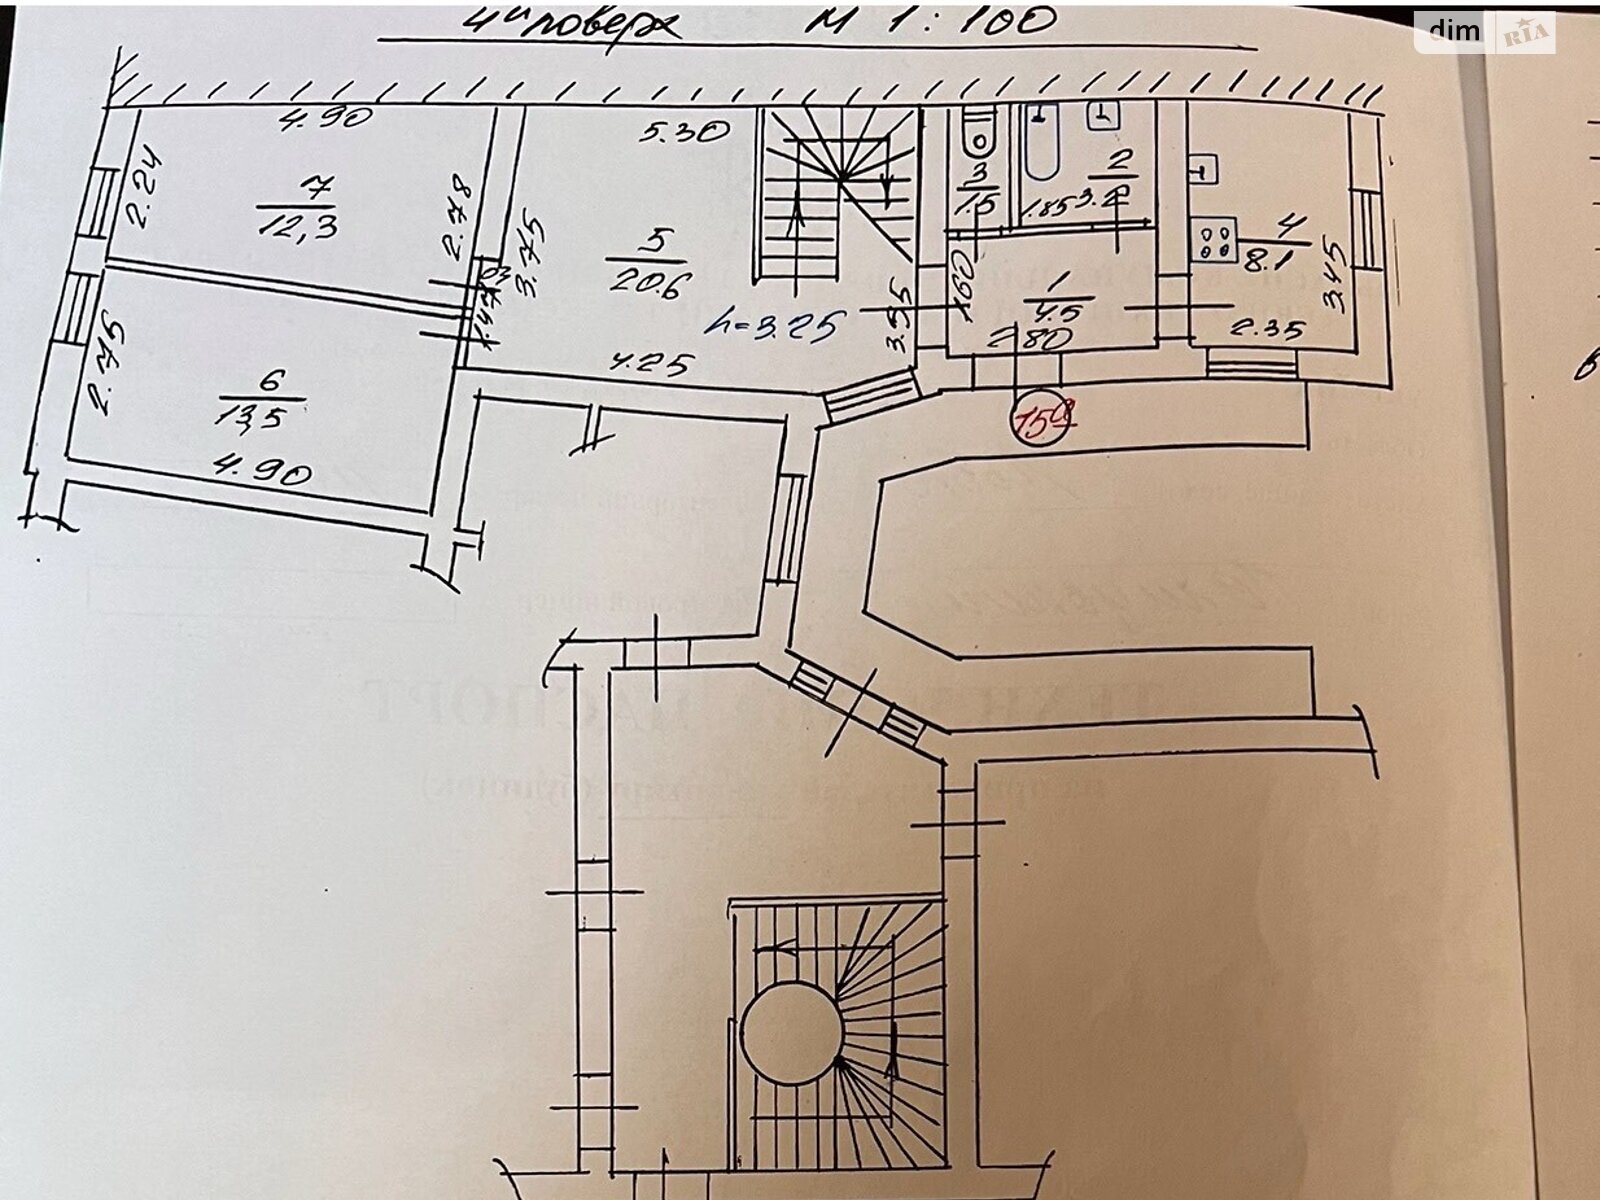 4й поверх М 1:100
dim RIA
4.90
5.30
2.24
7
12,3
2.78
3.75
5
20.6
3
1.5
2
3.2
1.85
4
8.1
3.45
1.60
1
4.5
2.80
2.35
h=3.25
3.55
4.25
2.75
6
13,5
4.90
15а